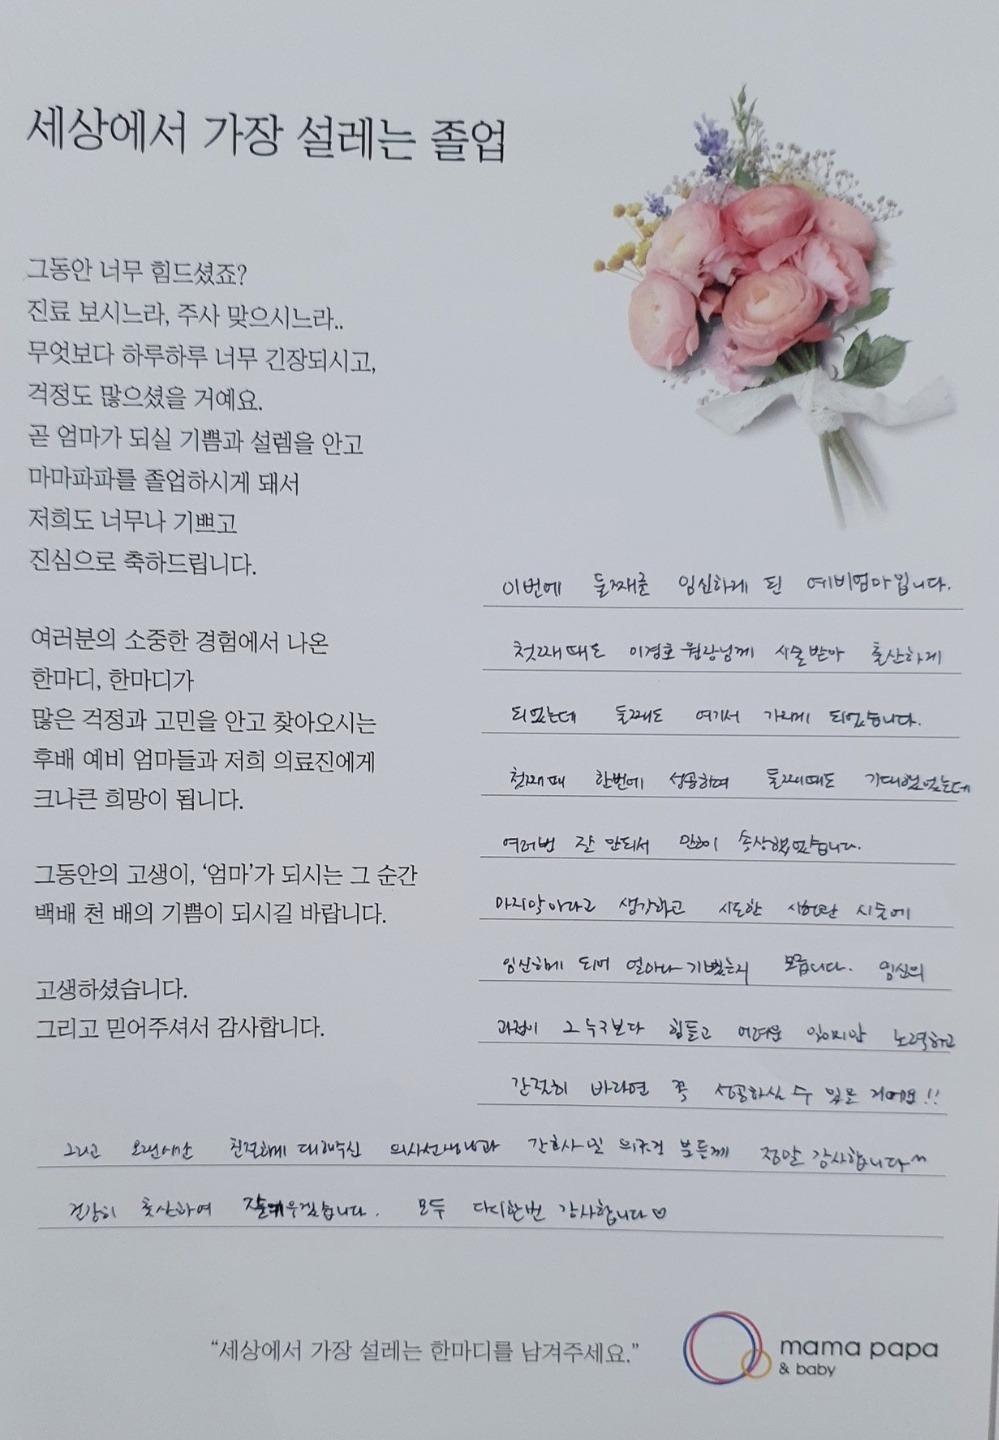 세상에서 가장 설레는 졸업
그동안 너무 힘드셨죠?
진료 보시느라, 주사 맞으시느라..
무엇보다 하루하루 너무 긴장되시고,
걱정도 많으셨을 거예요.
곧 엄마가 되실 기쁨과 설렘을 안고
마마파파를 졸업하시게 돼서
저희도 너무나 기쁘고
진심으로 축하드립니다.
여러분의 소중한 경험에서 나온
한마디, 한마디가
많은 걱정과 고민을 안고 찾아오시는
후배 예비 엄마들과 저희 의료진에게
크나큰 희망이 됩니다.
그동안의 고생이, ‘엄마’가 되시는 그 순간
백배 천 배의 기쁨이 되시길 바랍니다.
고생하셨습니다.
그리고 믿어주셔서 감사합니다.
이번에 둘째를 임신하게 된 예비엄마입니다.
첫째때도 이경호 원장님께 시술받아 출산하게
되었는데 둘째도 여기서 가지게 되었습니다.
첫째때 한번에 성공하여 둘째때도 기대했었는데
여러번 잘 안되서 많이 속상했었습니다.
마지막이라고 생각하고 시도한 시험관 시술에
임신하게 되어 얼마나 기뻤는지 모릅니다. 임신의
과정이 그 누구보다 힘들고 어려운 일이지만 노력하고
간절히 바라면 꼭 성공하실 수 있을 거에요!!
그리고 오랜시간 친절하게 대해주신 의사선생님과 간호사 및 의국진 분들께 정말 감사합니다^^
건강히 출산하여 잘 키우겠습니다. 모두 다시한번 감사합니다♡
“세상에서 가장 설레는 한마디를 남겨주세요.”
mama papa
& baby